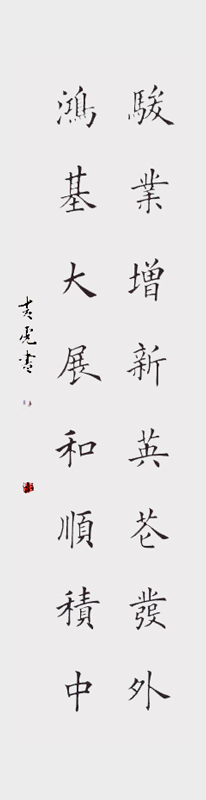 駿業增新英華發外
鴻基大展和順積中
黄虎書